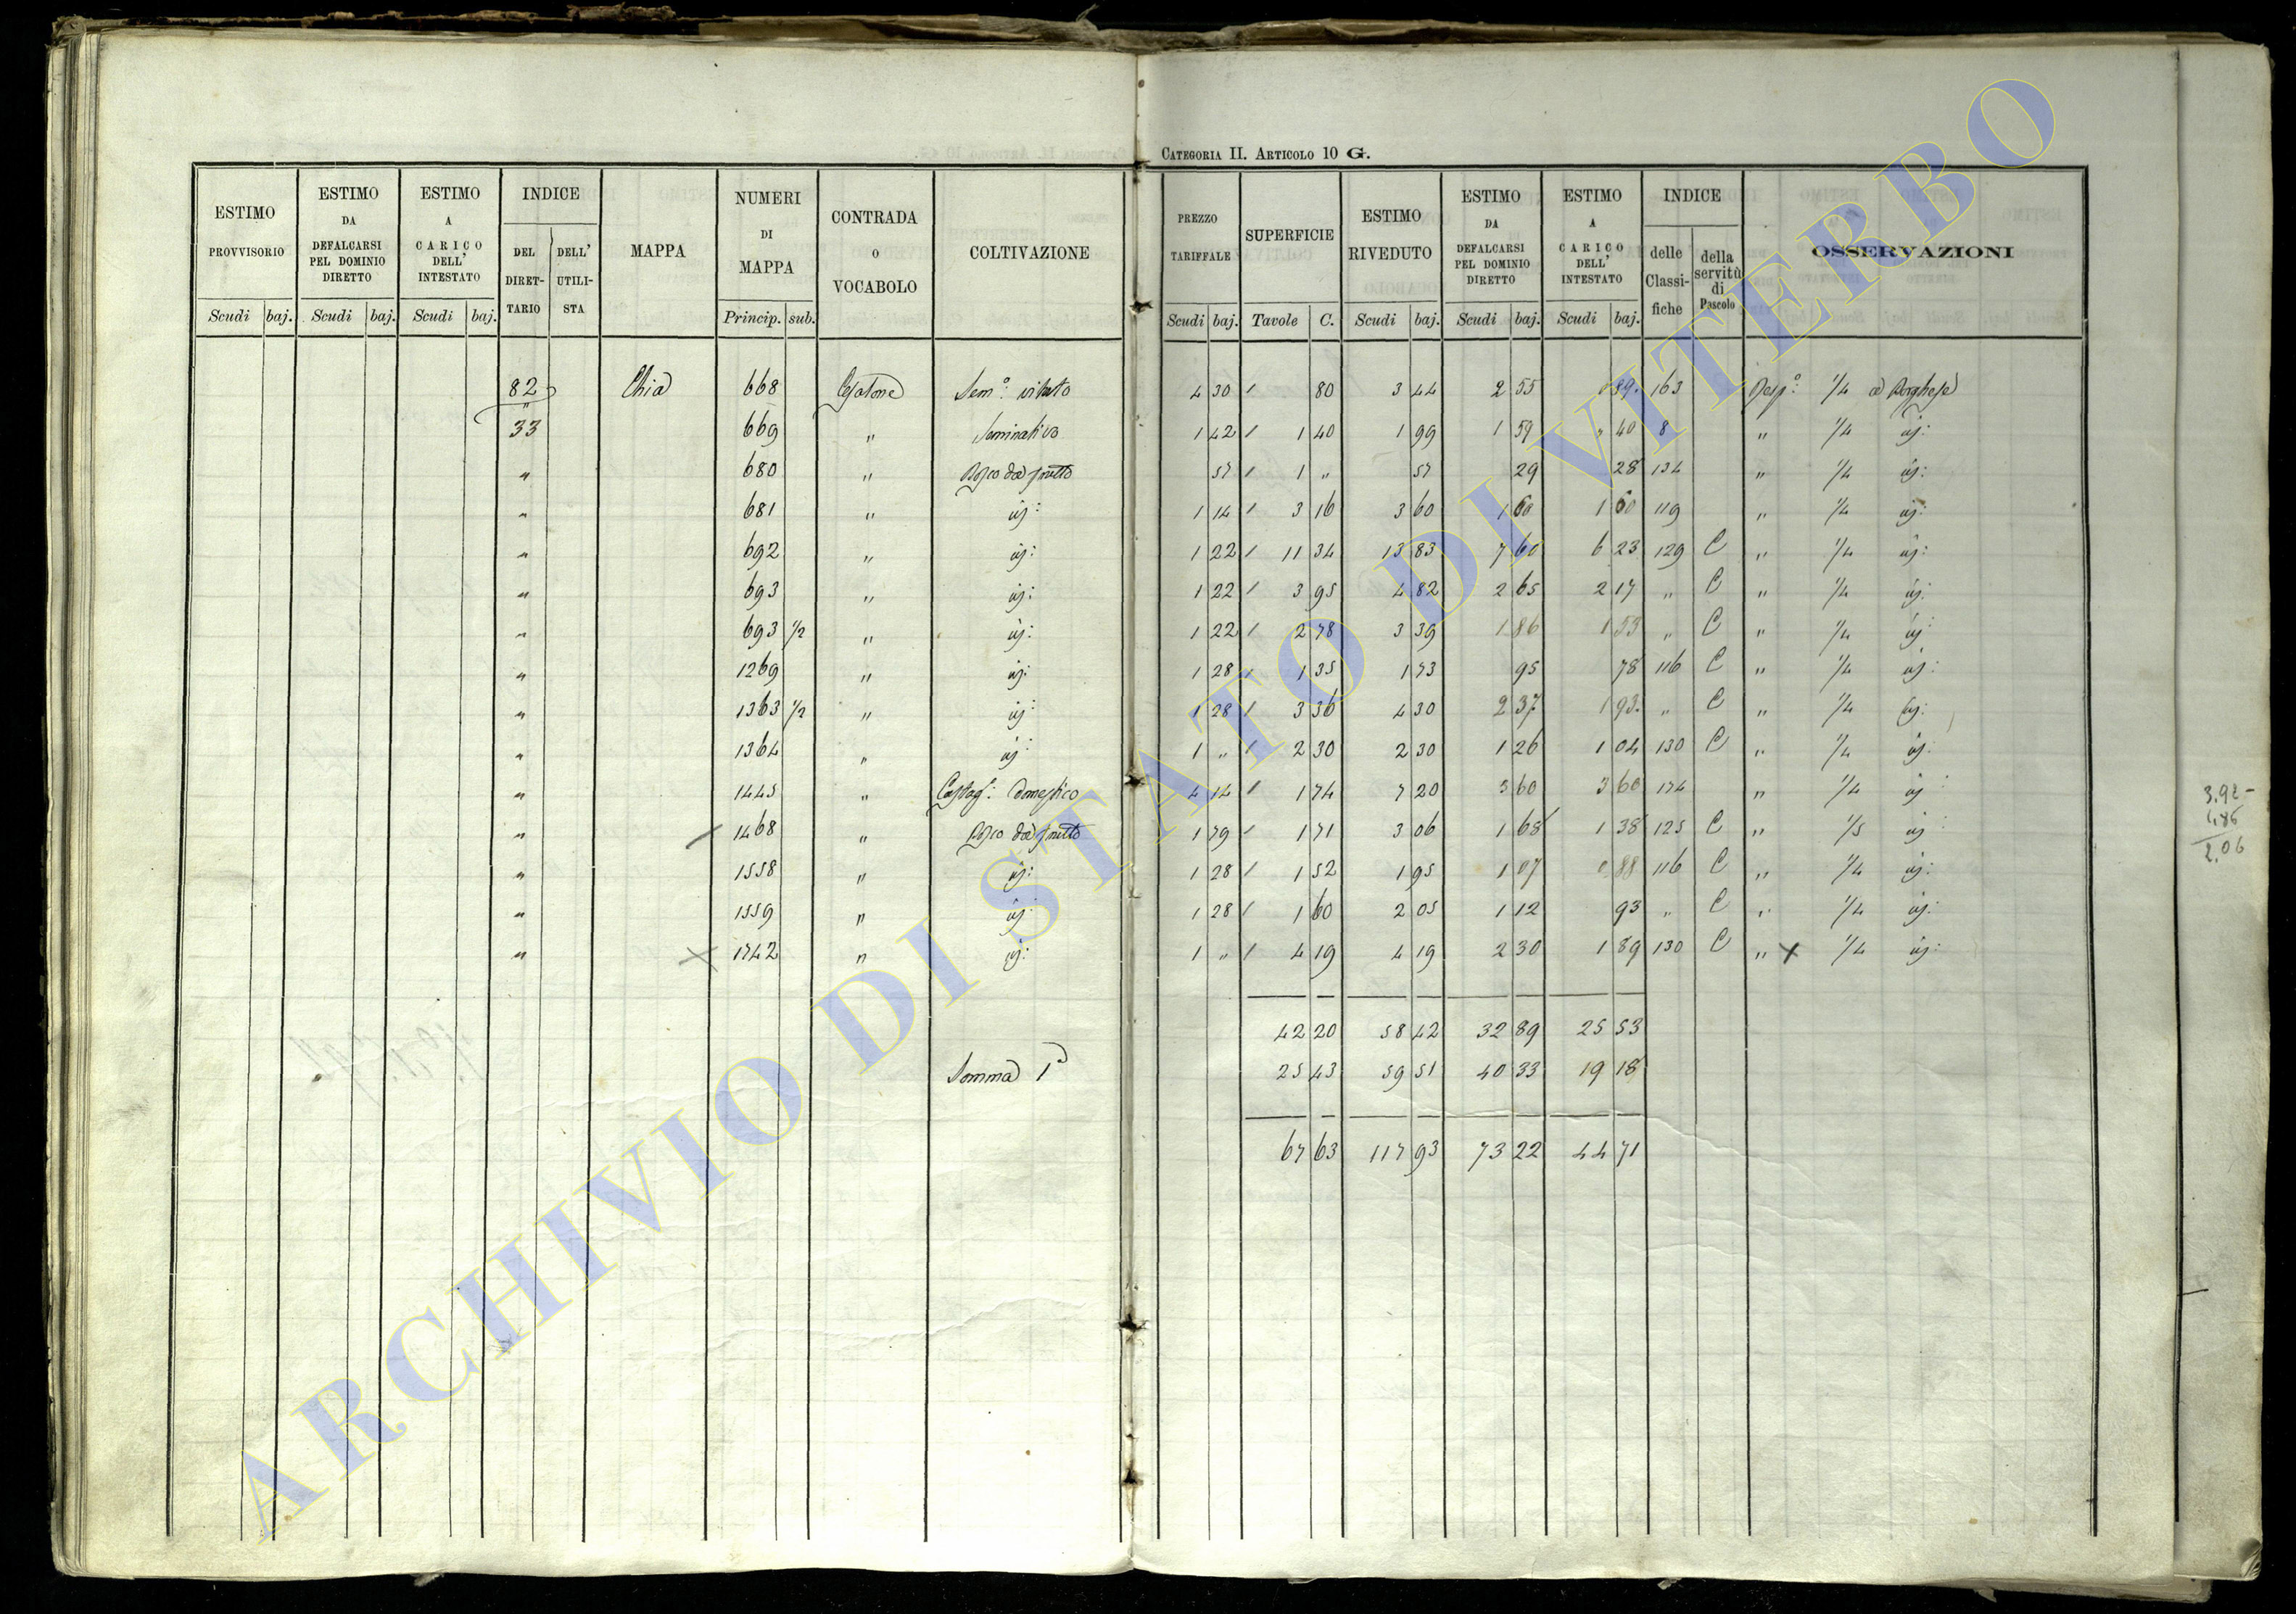 CATEGORIA II. ARTICOLO 10 G.
ESTIMO PROVVISORIO Scudi baj. | ESTIMO DA DEFALCARSI PEL DOMINIO DIRETTO Scudi baj. | ESTIMO A CARICO DELL' INTESTATO Scudi baj. | INDICE DEL DIRETTARIO | DELL' UTILISTA | MAPPA | NUMERI DI MAPPA Princip. sub. | CONTRADA O VOCABOLO | COLTIVAZIONE | PREZZO TARIFFALE Scudi baj. | SUPERFICIE Tavole C. | ESTIMO RIVEDUTO Scudi baj. | ESTIMO DA DEFALCARSI PEL DOMINIO DIRETTO Scudi baj. | ESTIMO A CARICO DELL' INTESTATO Scudi baj. | INDICE delle Classifiche | della servitù di Pascolo | OSSERVAZIONI
82 Chia 668 Sem.º vitato 4 30 80 3 44 2 55 89 163 1/4 a Borghese
33 669 " Seminativo 1 42 1 40 1 99 1 59 " 40 8 " 1/4 id:
" 680 " Bosco da frutto 57 1 " 57 29 28 134 " 1/4 id:
" 681 " id: 1 14 3 16 3 60 1 60 1 60 119 " 1/4 id:
" 692 " id: 1 22 11 34 13 83 7 60 6 23 129 C " 1/4 id:
" 693 " id: 1 22 3 95 4 82 2 65 2 17 " C " 1/4 id:
" 693 1/2 " id: 1 22 2 78 3 39 1 86 1 53 " C " 1/4 id:
" 1269 " id: 1 28 1 35 1 73 95 78 116 C " 1/4 id:
" 1363 1/2 " id: 1 28 3 36 4 30 2 37 1 93 " C " 1/4 id:
" 1364 " id: 1 " 2 30 2 30 1 26 1 04 130 C " 1/4 id:
" 1445 " Castag: domestico 4 14 1 74 7 20 3 60 3 60 174 " 1/4 id:
" 1468 " Bosco da frutto 1 79 1 71 3 06 1 68 1 38 125 C " 1/5 id:
" 1558 " id: 1 28 1 52 1 95 1 07 0 88 116 C " 1/4 id:
" 1559 " id: 1 28 1 60 2 05 1 12 93 " C " 1/4 id:
" X 1742 " id: 1 " 4 19 4 19 2 30 1 89 130 C " X 1/4 id:
42 20 58 42 32 89 25 53
Somma 1ª 25 43 59 51 40 33 19 18
67 63 117 93 73 22 44 71
3.92
2.06
ARCHIVIO DI STATO DI VITERBO